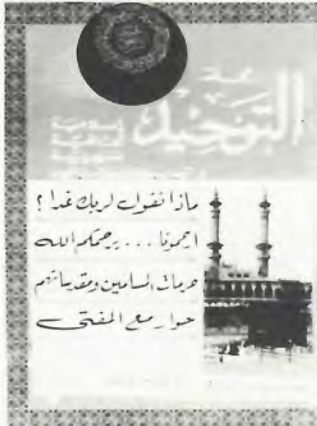 مجلة
التوحيد
ماذا تقول لربك غدا ؟
ارحمونا . . . يرحمكم الله
حرمات المسلمين ومقدساتهم
حوار مع المفتى